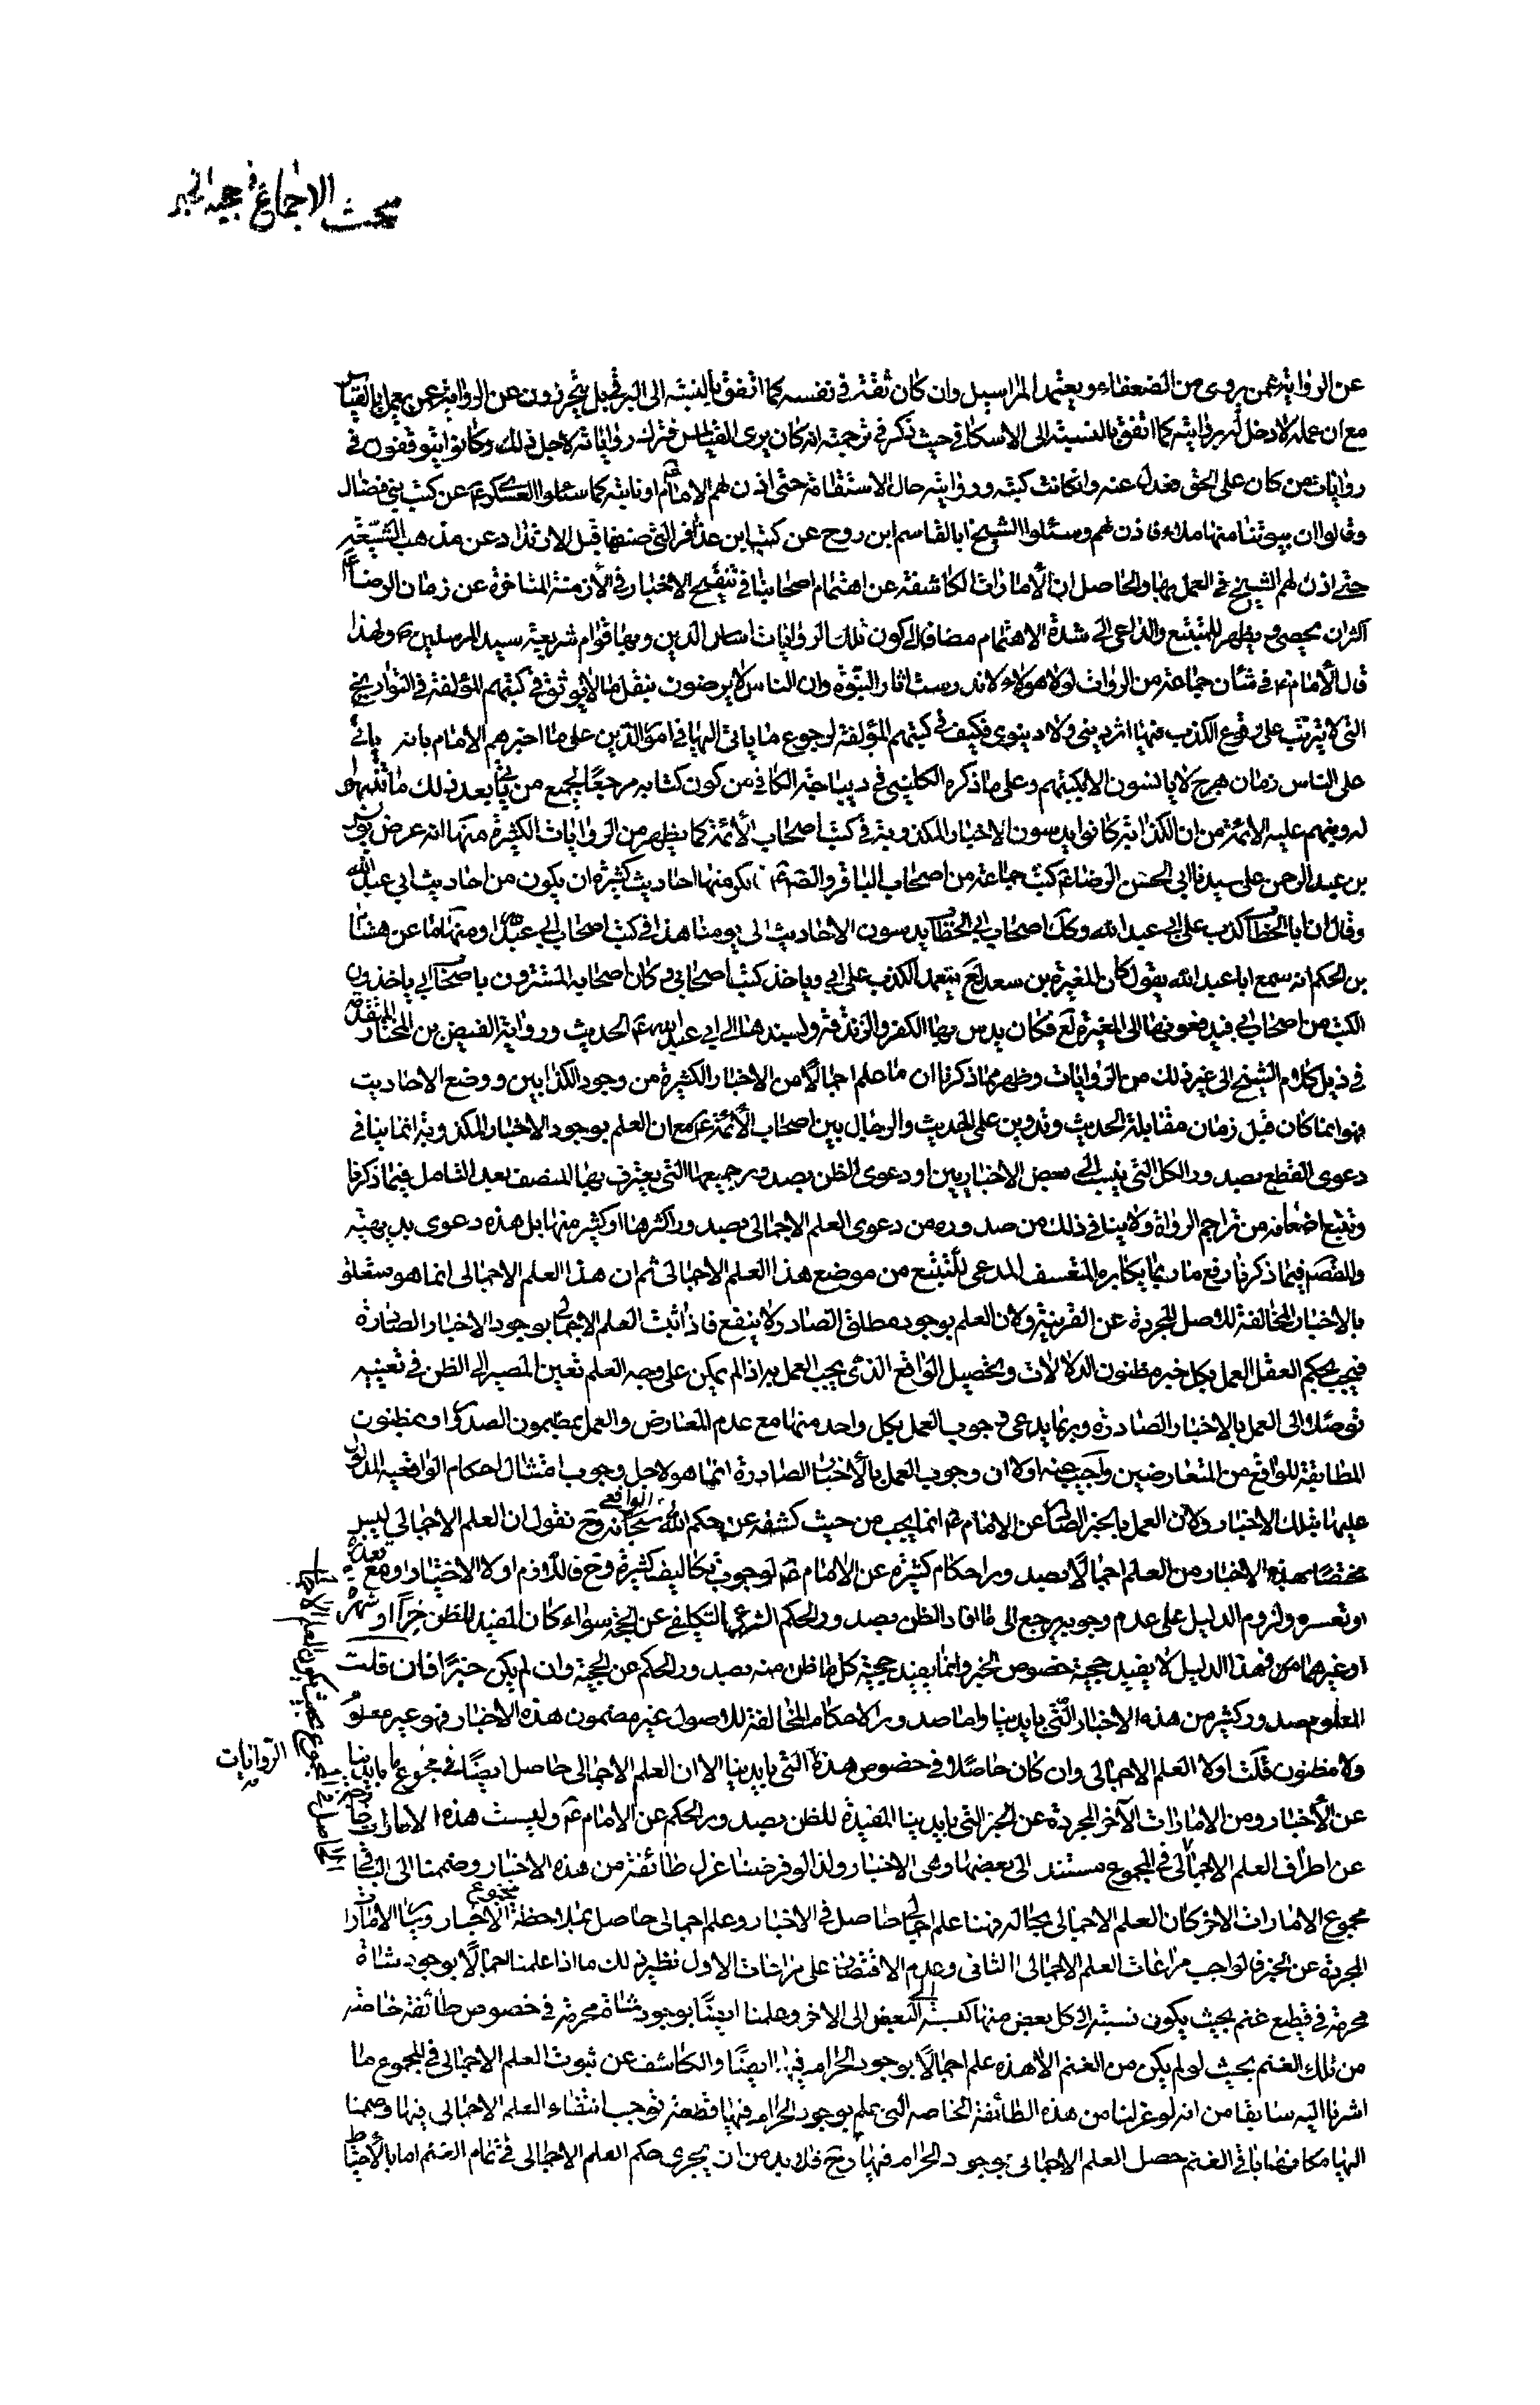 مبحث الاجماع في حجية الخبر
عن الرواية عمن يروى من الضعفاء ويعتمد المراسيل وان كان ثقة في نفسه كما اتفق بالنسبة الى البرقي بل يتحرزون عن الرواية عمن يعمل بالقياس
مع ان عمله لا دخل له بروايته كما اتفق بالنسبة الى الاسكافي حيث ذكر في ترجمته انه كان يرى القياس فترك رواياته لاجل ذلك وكانوا يتوقفون في
روايات من كان على الحق فعدل عنه وان كانت كتبه وروايته حال الاستقامة حتى اذن لهم الامام ع او نايبه كما سئلوا العسكرى ع عن كتب بنى فضال
وقالوا ان بيوتنا منها ملاء فاذن لهم وسئلوا الشيخ ابا القاسم ابن روح عن كتب ابن عذافر التى صنفها قبل الارتداد عن مذهب الشيعة
حتى اذن لهم الشيخ في العمل بها والحاصل ان الامارات الكاشفة عن اهتمام اصحابنا في تنقيح الاخبار في الازمنة المتاخرة عن زمان الرضا ع
اكثر ان يحصى ويظهر للمتتبع والداعى الى شدة الاهتمام مضافا الى كون تلك الروايات اساس الدين وبها قوام شريعة سيد المرسلين ص ولهذا
قال الامام ع في شأن جماعة من الرواة لولا هؤلاء لاندرست اثار النبوة وان الناس لا يرضون بنقل ما لا يوثق في كتبهم المؤلفة في التواريخ
التى لا يترتب على وقوع الكذب فيها اثر دينى ولا دينوى فكيف في كتبهم المؤلفة لرجوع من ياتى اليها في امور الدين على ما اخبرهم الامام بانه ياتى
على الناس زمان هرج لا يانسون الا بكتبهم وعلى ما ذكره الكلينى في ديباجة الكافي من كون كتابه مرجعا لجميع من ياتى بعد ذلك ما تنبهوا
له ونبههم عليه الائمة من ان الكذابة كانوا يدسون الاخبار المكذوبة في كتب اصحاب الائمة كما يظهر من الروايات الكثيرة منها انه عرض يونس
بن عبد الرحمن على سيدنا ابى الحسن الرضا ع كتب جماعة من اصحاب الباقر والصادق ع فانكر منها احاديث كثيرة ان يكون من احاديث ابى عبد الله
وقال ان ابا الخطاب كذب على ابى عبد الله وكذلك اصحاب ابى الخطاب يدسون الاحاديث الى يومنا هذا في كتب اصحاب ابى عبد الله ومنها ما عن هشام
بن الحكم انه سمع ابا عبد الله يقول كان المغيرة بن سعد لع يتعمد الكذب على ابى وياخذ كتب اصحابه وكان اصحابه المستترون باصحاب ابى ياخذون
الكتب من اصحاب ابى فيدفعونها الى المغيرة لع فكان يدس فيها الكفر والزندقة ويسندها الى ابى عبد الله ع الحديث ورواية الفيض بن المختار المتقدمة
في ذيل كلام الشيخ الى غير ذلك من الروايات وظهر مما ذكرنا ان ما علم اجمالا من الاخبار الكثيرة من وجود الكذابين ووضع الاحاديث
فهو انما كان قبل زمان مقابلة الحديث وتدوين علمى الحديث والرجال بين اصحاب الائمة ع مع ان العلم بوجود الاخبار المكذوبة انما ينافي
دعوى القطع بصدور الكل التى ينسب الى بعض الاخباريين او دعوى الظن بصدور جميعها التى يعترف بها المنصف بعد التامل فيما ذكرنا
وتتبع اضعافه من تراجم الرواة ولا ينافي ذلك من صدوره من دعوى العلم الاجمالى بصدور اكثرها او كثير منها بل هذه دعوى بديهية
والمقصود فيما ذكرنا رفع ما ربما يكابره المتعسف المدعى للتتبع من موضع هذا العلم الاجمالى ثم ان هذا العلم الاجمالى انما هو متعلق
بالاخبار المخالفة للاصل المجردة عن القرينة ولان العلم بوجود مطلق الصادر لا ينفع فاذا ثبت العلم الاجمالى بوجود الاخبار الصادرة
فيجب بحكم العقل العمل بكل خبر مظنون الدلالات وتحصيل الواقع الذى يجب العمل به اذا لم يمكن على وجه العلم تعين المصير الى الظن في تعيينه
توصلا الى العمل بالاخبار الصادرة وربما يدعى وجوب العمل بكل واحد منها مع عدم المعارض والعمل بمظنون الصدور او بمظنون
المطابقة للواقع من المتعارضين واجيب عنه اولا ان وجوب العمل بالاخبار الصادرة انما هو لاجل وجوب امتثال احكام الواقعية المدلول
عليها بتلك الاخبار ولان العمل بالخبر الصادر عن الامام ع انما يجب من حيث كشفه عن حكم الله الواقعى سبحانه وح نقول ان العلم الاجمالى ليس
مختصا بهذه الاخبار من العلم اجمالا بصدور احكام كثيرة عن الامام ع لوجوب تكاليف كثيرة وح فاللازم اولا الاختيار ومع تعذره
او تعسره ولزوم الدليل على عدم وجوبه يرجع الى ما افاد الظن بصدور الحكم الشرعى التكليفى عن الحجة سواء كان المفيد للظن خبرا او شهرة
او غيرهما من فهذا الدليل لا يفيد حجية خصوص الخبر وانما يفيد حجية كل ما ظن منه بصدور الحكم عن الحجة وان لم يكن خبرا فان قلت
المعلوم صدور كثير من هذه الاخبار التى بايدينا واما صدور الاحكام المخالفة للاصول غير مضمون هذه الاخبار فهو غير معلوم
ولا مظنون قلت اولا العلم الاجمالى وان كان حاصلا في خصوص هذه التى بايدينا الا ان العلم الاجمالى حاصل ايضا في مجموع ما بايدينا
الروايات
عن الاخبار ومن الامارات الاخر المجردة عن الخبر التى بايدينا المفيدة للظن بصدور الحكم عن الامام ع وليست هذه الامارات خارجة
عن اطراف العلم الاجمالى في المجموع مستند الى بعضها وهى الاخبار ولذا لو فرضنا عزل طائفة من هذه الاخبار وضممنا الى الباقى
مجموع الامارات الاخر كان العلم الاجمالى بحاله فهنا علم اجمالى حاصل في الاخبار وعلم اجمالى حاصل بملاحظة مجموع الاخبار وسائر الامارات
المجردة عن الخبر فالواجب مراعات العلم الاجمالى الثانى وعدم الاقتصار على مراعات الاول نظير ذلك ما اذا علمنا اجمالا بوجود شاة
محرمة في قطيع غنم بحيث يكون نسبته الى كل بعض منها كنسبته الى البعض الاخر وعلمنا ايضا بوجود شاة محرمة في خصوص طائفة خاصة
من تلك الغنم بحيث لو لم يكن من الغنم الا هذه علم اجمالا بوجود الحرام فيها ايضا والكاشف عن ثبوت العلم الاجمالى في المجموع ما
اشرنا اليه سابقا من انه لو عزلنا من هذه الطائفة الخاصه التى علم بوجود الحرام فيها قطعة توجب انتفاء العلم الاجمالى فيها وضممنا
اليها مكانها باقى الغنم حصل العلم الاجمالى بوجود الحرام فيها وح فلا بد من ان يجرى حكم العلم الاجمالى في تمام الغنم اما بالاحتياط